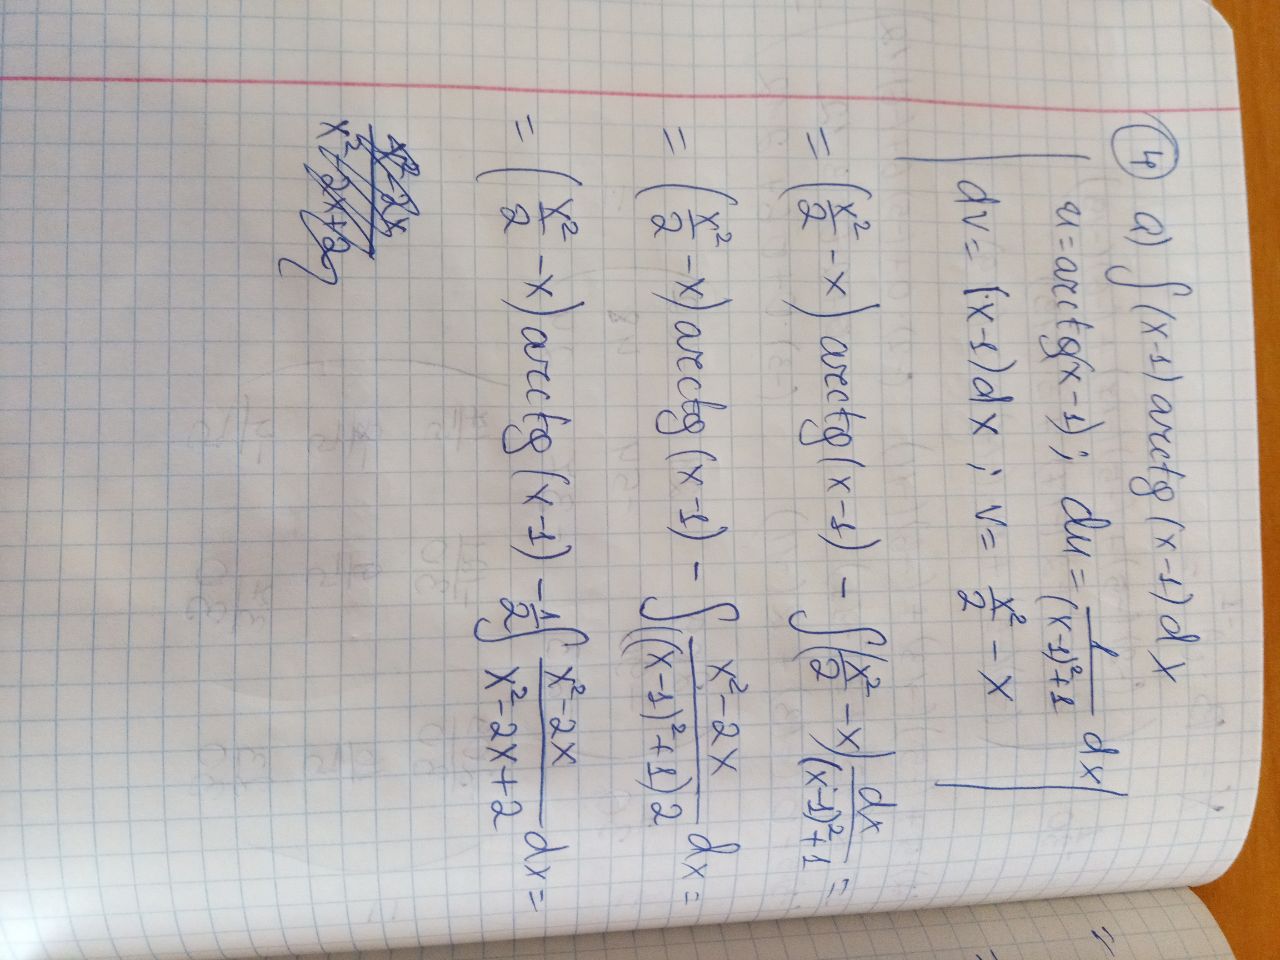 ④ a) ∫(x-1) arctg (x-1) dx
u = arctg(x-1); du = 1/((x-1)²+1) dx
dv = (x-1)dx ; v = x²/2 - x
= (x²/2 - x) arctg (x-1) - ∫(x²/2 - x) dx/((x-1)²+1) =
= (x²/2 - x) arctg (x-1) - ∫ (x²-2x)/(((x-1)²+1) 2) dx =
= (x²/2 - x) arctg (x-1) - 1/2 ∫ (x²-2x)/(x²-2x+2) dx =
(x²-2x)/(x²-2x+2)